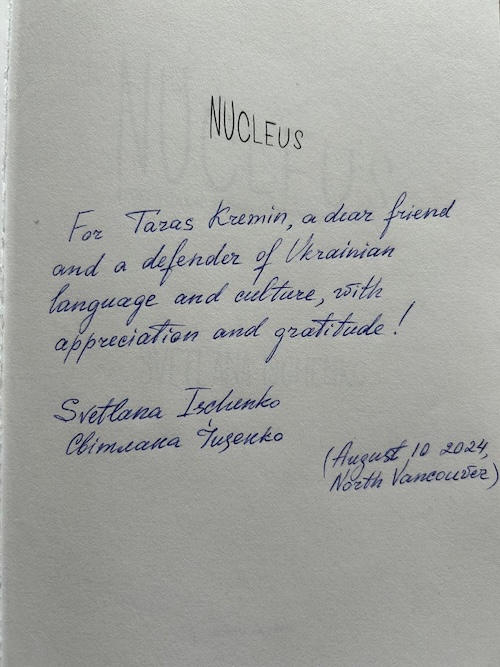 NUCLEUS
For Taras Kremin, a dear friend
and a defender of Ukrainian
language and culture, with
appreciation and gratitude!
Svetlana Ischenko
Світлана Іщенко
(August 10 2024,
North Vancouver)